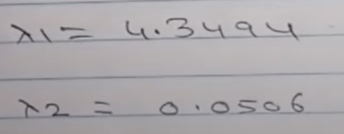 λ1 = 4.3494
λ2 = 0.0506